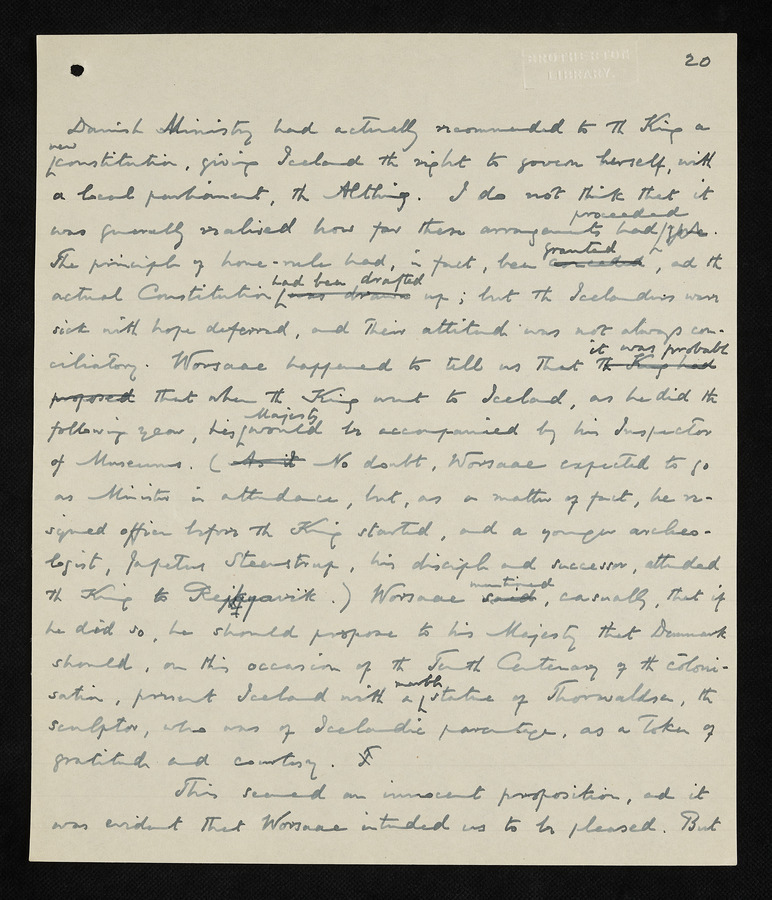 BROTHERTON
LIBRARY.
20
Danish Ministry had actually recommended to th King a
new
constitution, giving Iceland th right to govern herself, with
a local parliament, th Althing. I do not think that it
proceeded
was generally realised how far these arrangements had gone.
granted
The principle of home-rule had, in fact, been conceded, ad th
had been drafted
actual Constitution was drawn up; but th Icelanders were
sick with hope deferred, and their attitude was not always con-
it was probable
ciliatory. Worsaae happened to tell us that th King had
proposed that when th King went to Iceland, as he did th
Majesty
following year, his would be accompanied by his Inspector
of Museums. (As it No doubt, Worsaae expected to go
as Minister in attendance, but, as a matter of fact, he re-
signed office before th King started, and a younger archeo-
logist, Japetus Steenstrup, his disciple and successor, attended
th King to Rejkjavik.) Worsaae
mentioned
said, casually, that if
he did so, he should propose to his Majesty that Denmark
should, on this occasion of th Tenth Centenary of th coloni-
marble
sation, present Iceland with a statue of Thorwaldsen, th
sculptor, who was of Icelandic parentage, as a token of
gratitude and courtesy.
This seemed an innocent proposition, ad it
was evident that Worsaae intended us to be pleased. But